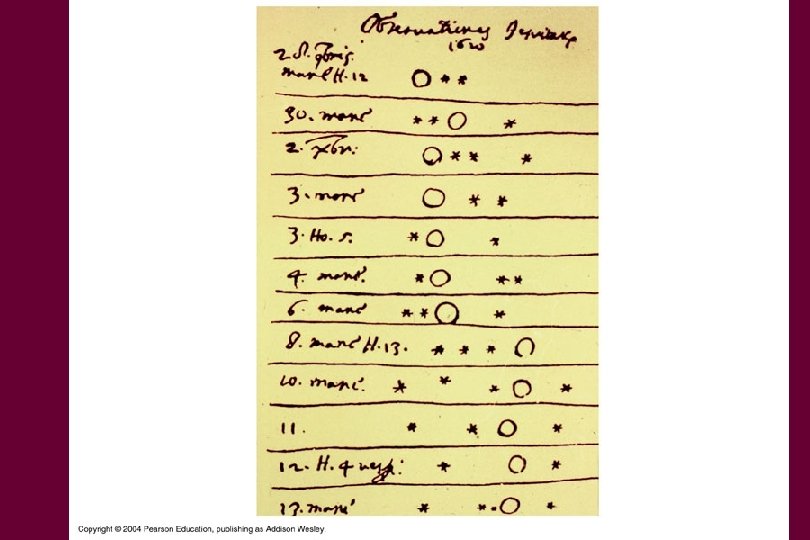 Observationes
1620
2. S. xbris
mane H. 12
30. mane
2. xbr:
3. mane
3. Ho. 5.
4. mane.
6. mane
8. mane H. 13.
10. mane.
11.
12. H. 4 vesp:
13. mane
Copyright © 2004 Pearson Education, publishing as Addison Wesley